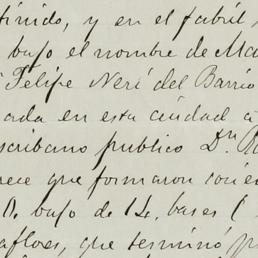 finido, y en el fabril
bajo el nombre de Ma
Felipe Neri del Barrio
ada en esta ciudad a
scribano publico Dn
rece que formaron con
D. bajo de 14. bases (
aflores, que terminó p